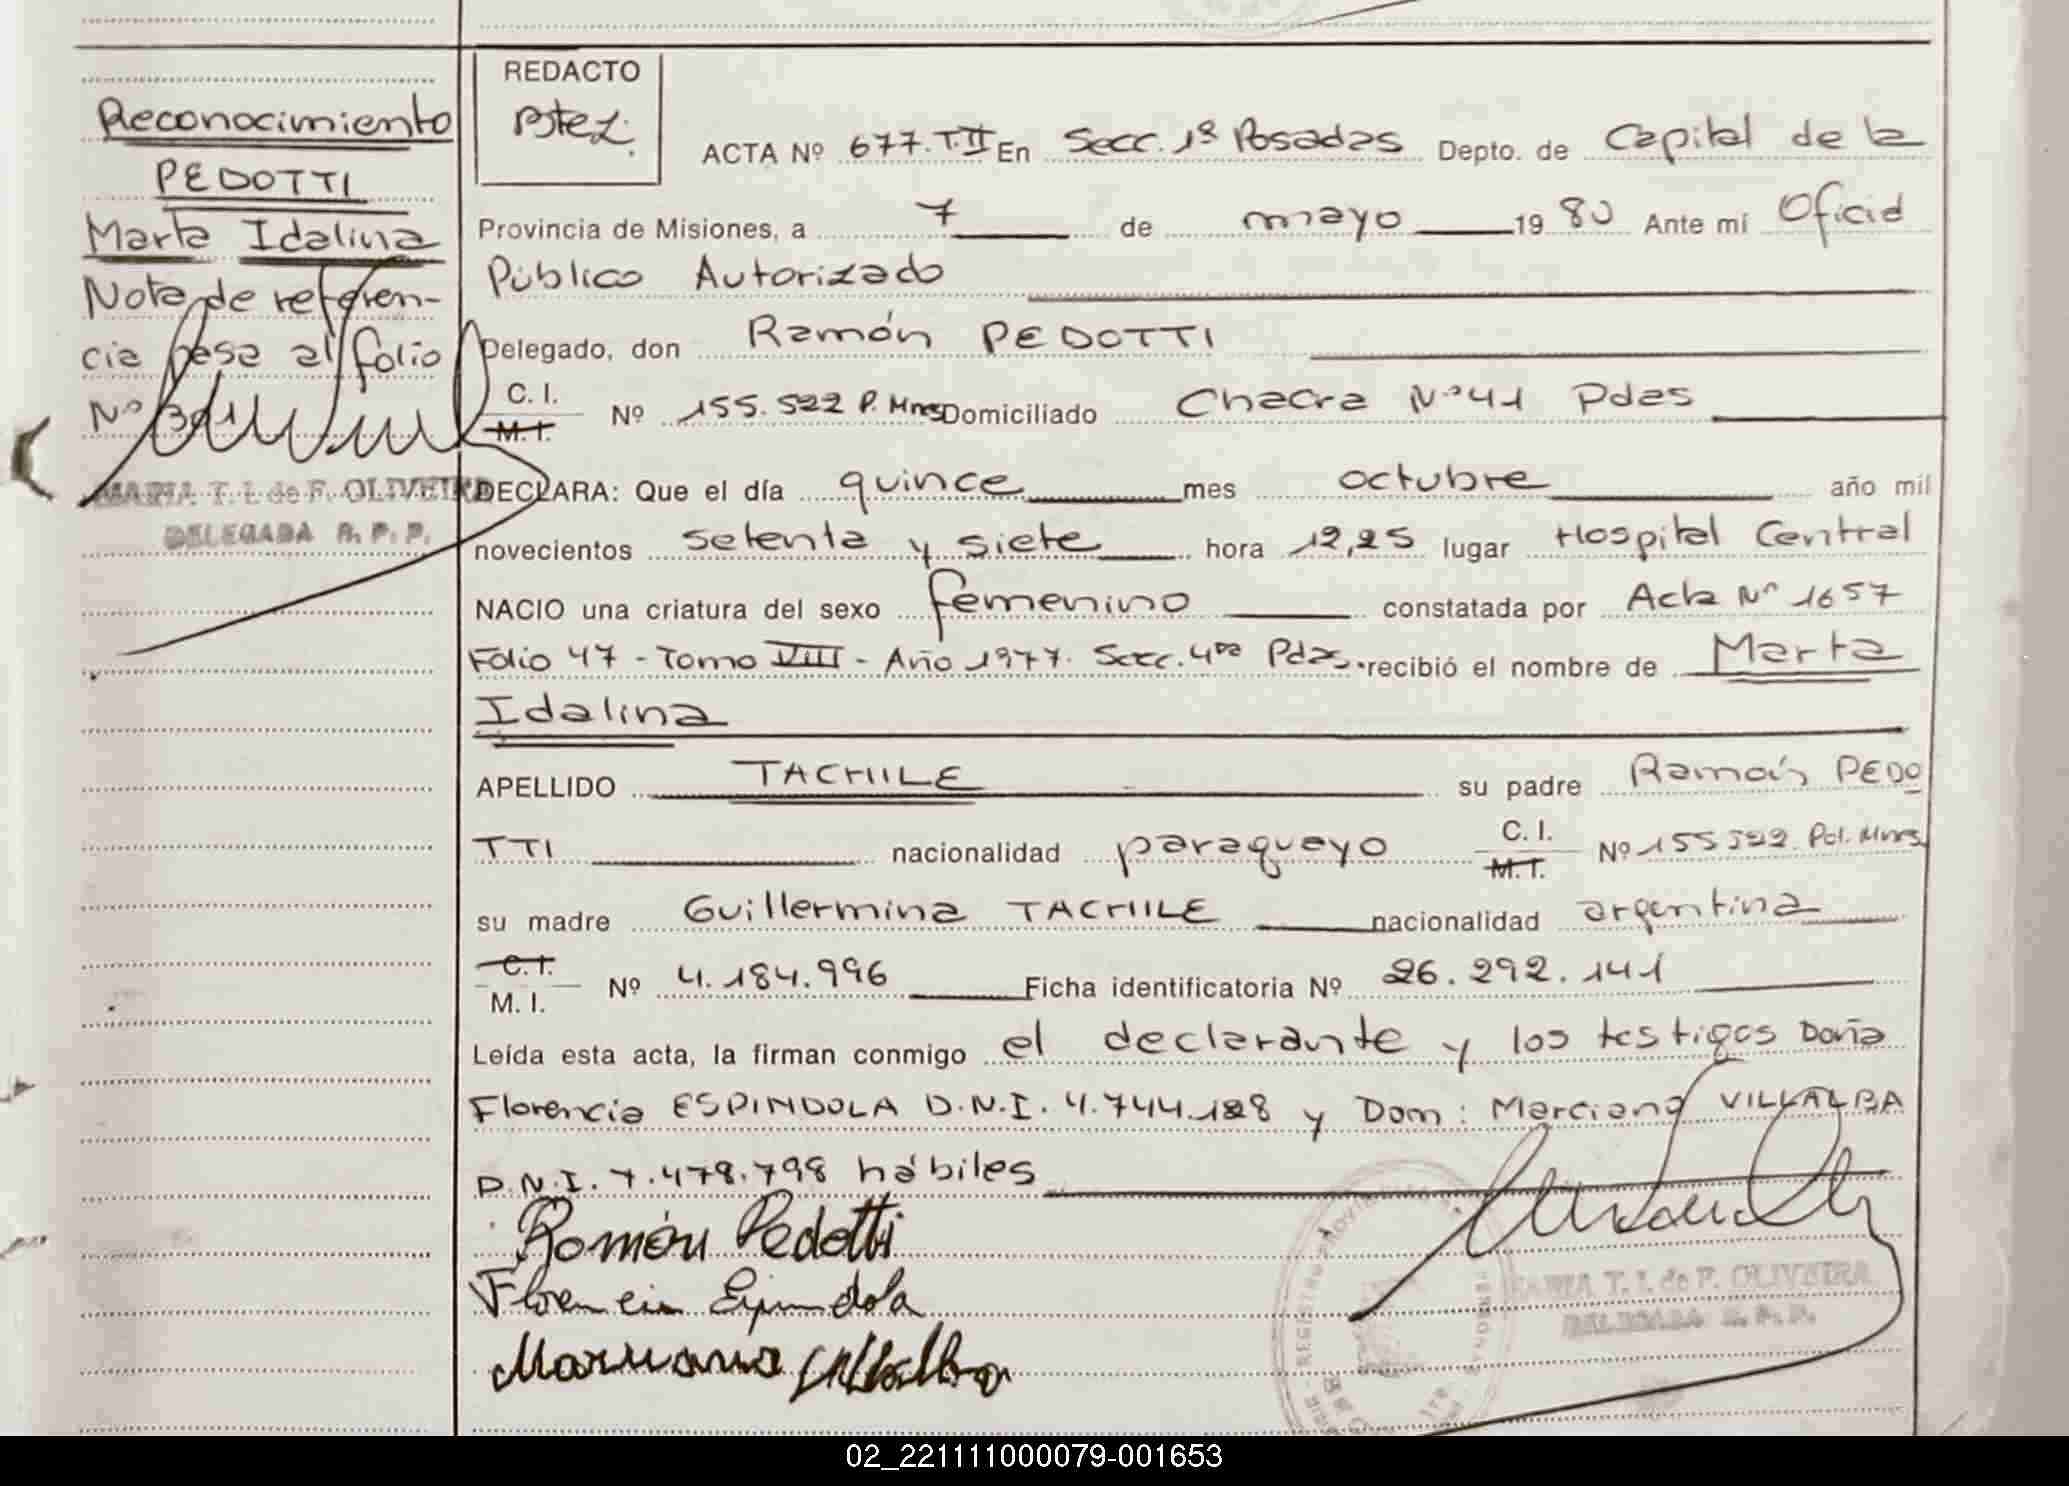 Reconocimiento
PEDOTTI
Marta Idalina
Nota de referen-
cia pasa al folio
Nº 391
MARIA T. I. de F. OLIVEIRA
DELEGADA R. P. P.
REDACTO
ACTA Nº 677.T.II En Secc. 1ª Posadas Depto. de Capital de la
Provincia de Misiones, a 7 de mayo 1980 Ante mí Oficial
Público Autorizado
Delegado, don Ramón PEDOTTI
C. I.
M. I. Nº 155.522 P. Mnes Domiciliado Chacra Nº 41 Pdas
DECLARA: Que el día quince mes octubre año mil
novecientos setenta y siete hora 12,25 lugar Hospital Central
NACIO una criatura del sexo femenino constatada por Acta Nº 1657
Folio 47 - Tomo VIII - Año 1977. Secc. 4ta Pdas. recibió el nombre de Marta
Idalina
APELLIDO TACHILE su padre Ramón PEDO
TTI nacionalidad paraguayo C. I.
M. I. Nº 155522 Pol. Mnes.
su madre Guillermina TACHILE nacionalidad argentina
C. I.
M. I. Nº 4.184.996 Ficha identificatoria Nº 26.292.141
Leída esta acta, la firman conmigo el declarante y los testigos Doña
Florencia ESPINDOLA D.N.I. 4.744.188 y Dom: Marciano VILLALBA
D.N.I. 7.478.798 hábiles
Ramón Pedotti
Florencia Espindola
Marciano Villalba
MARIA T. I. de F. OLIVEIRA
DELEGADA R. P. P.
02_221111000079-001653